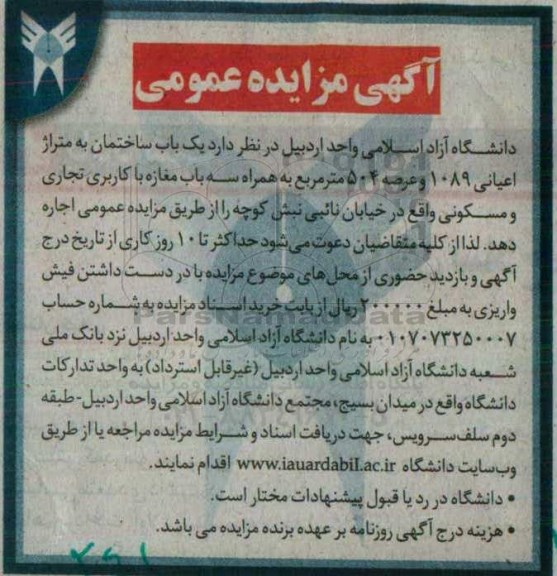 آگهی مزایده عمومی
دانشگاه آزاد اسلامی واحد اردبیل در نظر دارد یک باب ساختمان به متراژ
اعیانی ۱۰۸۹ وعرصه ۵۰۴ مترمربع به همراه سه باب مغازه با کاربری تجاری
و مسکونی واقع در خیابان نائبی نبش کوچه را از طریق مزایده عمومی اجاره
دهد. لذا از کلیه متقاضیان دعوت می‌شود حداکثر تا ۱۰ روز کاری از تاریخ درج
آگهی و بازدید حضوری از محل‌های موضوع مزایده با در دست داشتن فیش
واریزی به مبلغ ۲۰۰۰۰۰۰ ریال از بابت خرید اسناد مزایده به شماره حساب
۰۱۰۷۰۷۳۲۵۰۰۰۷ به نام دانشگاه آزاد اسلامی واحد اردبیل نزد بانک ملی
شعبه دانشگاه آزاد اسلامی واحد اردبیل (غیرقابل استرداد) به واحد تدارکات
دانشگاه واقع در میدان بسیج، مجتمع دانشگاه آزاد اسلامی واحد اردبیل - طبقه
دوم سلف سرویس، جهت دریافت اسناد و شرایط مزایده مراجعه یا از طریق
وب‌سایت دانشگاه www.iauardabil.ac.ir اقدام نمایند.
• دانشگاه در رد یا قبول پیشنهادات مختار است.
• هزینه درج آگهی روزنامه بر عهده برنده مزایده می باشد.